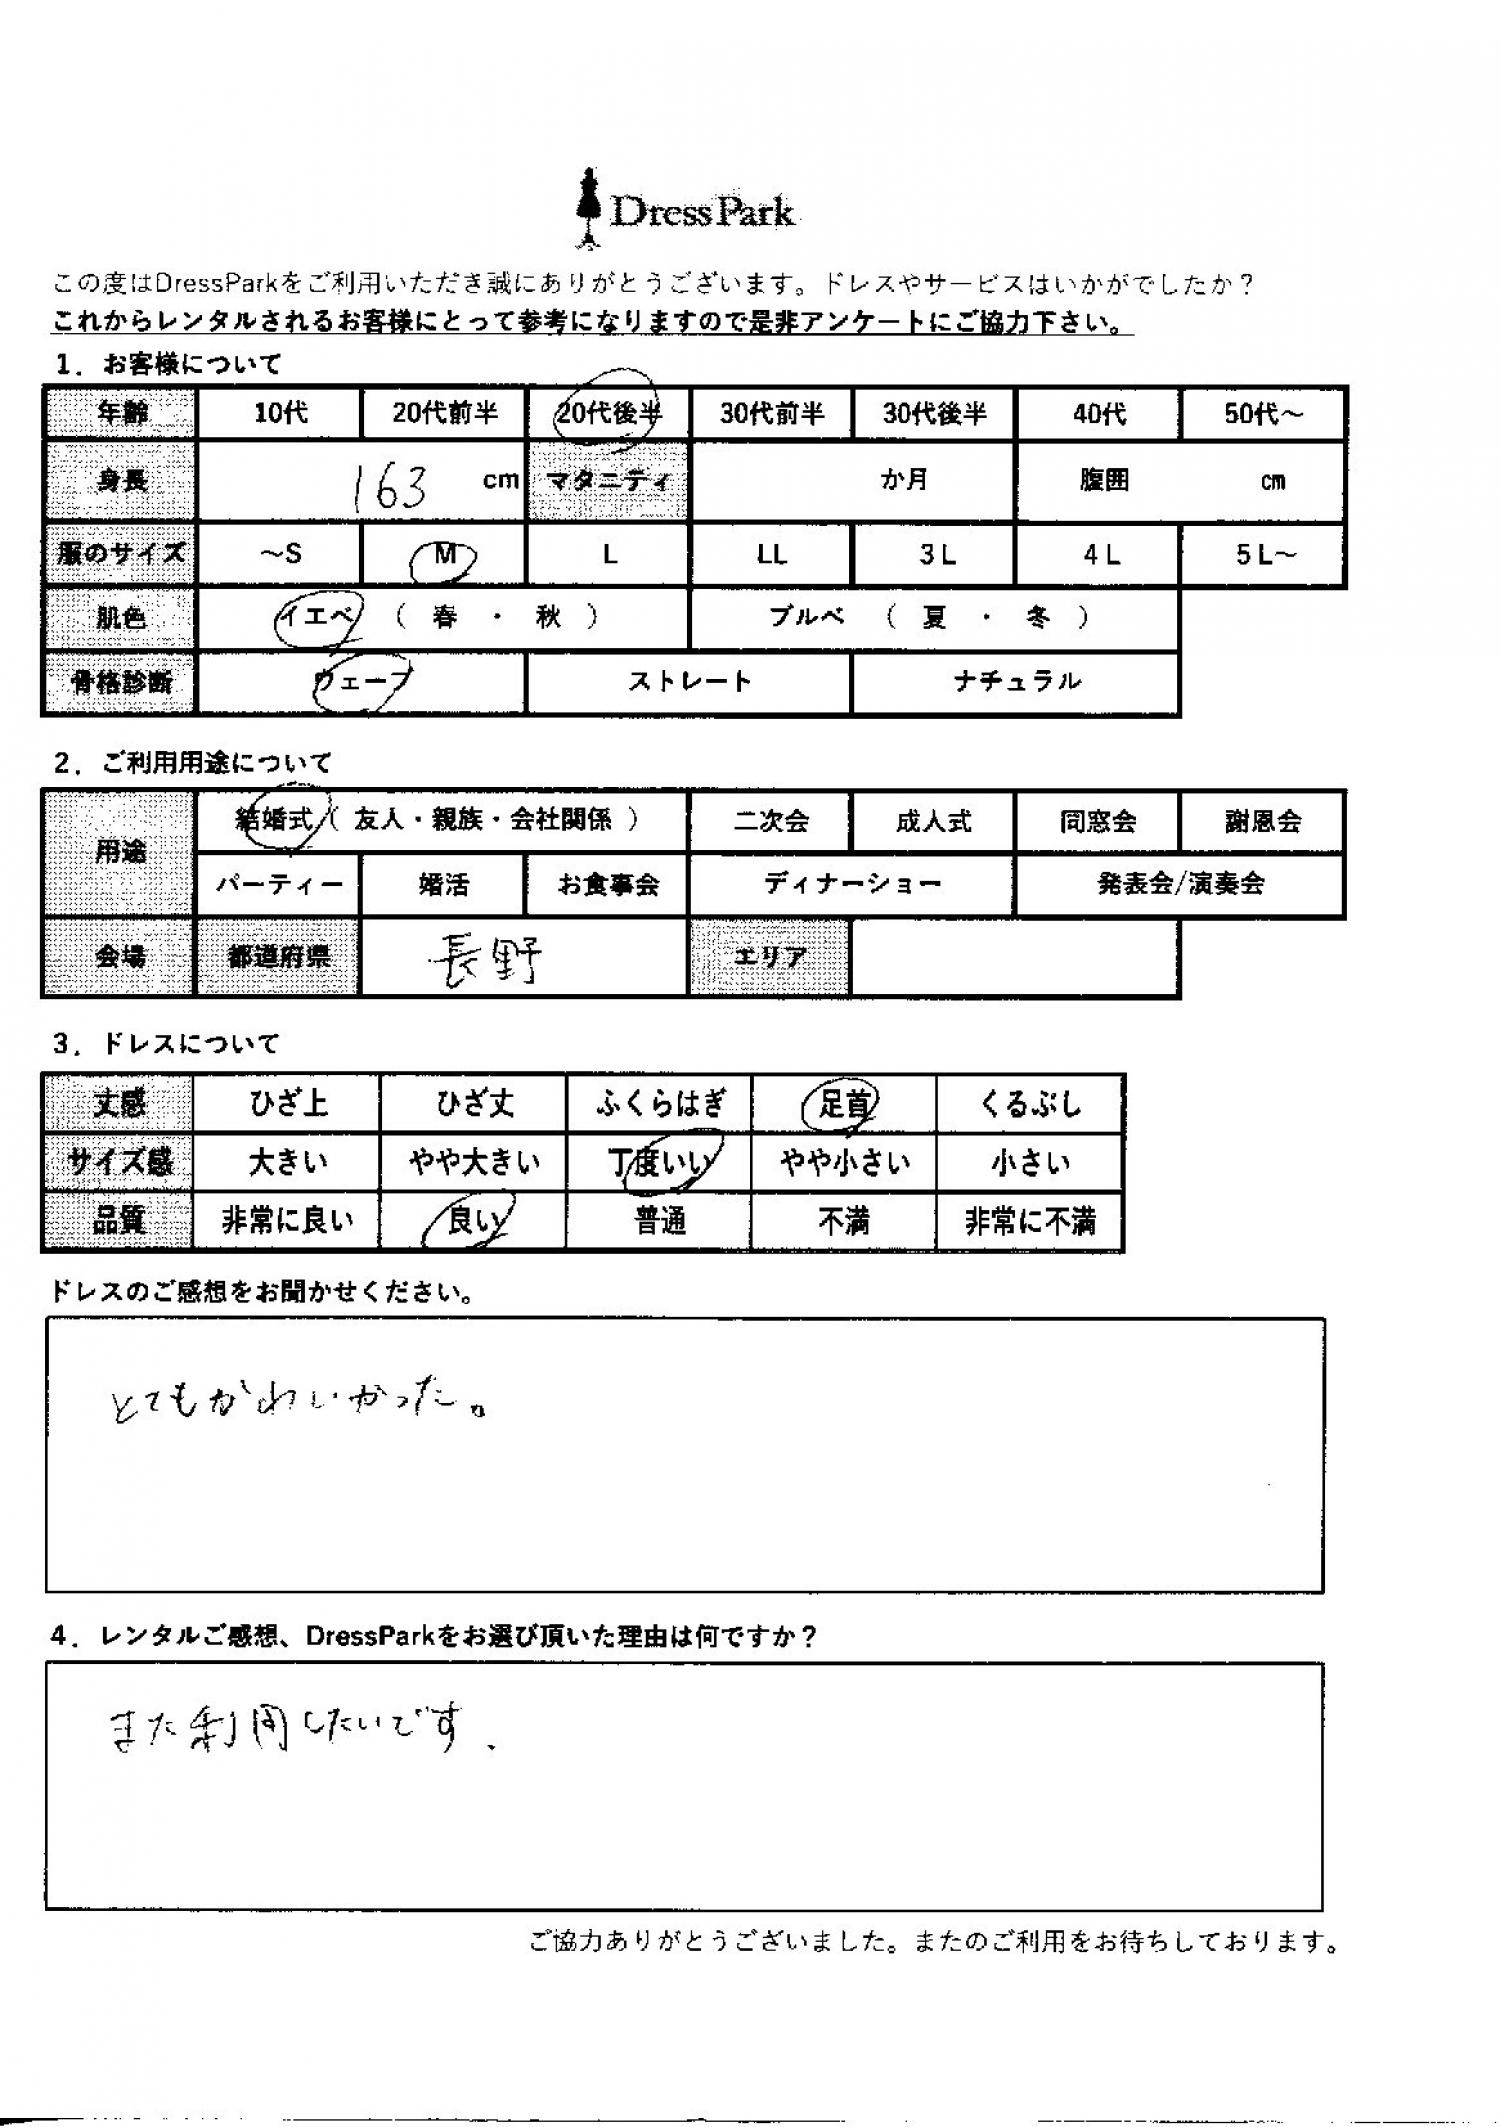 DressPark
この度はDressParkをご利用いただき誠にありがとうございます。ドレスやサービスはいかがでしたか？
これからレンタルされるお客様にとって参考になりますので是非アンケートにご協力下さい。
1．お客様について
年齢 10代 20代前半 20代後半 30代前半 30代後半 40代 50代～
身長 163 cm マタニティ か月 腹囲 cm
服のサイズ ～S M L LL 3L 4L 5L～
肌色 イエベ （ 春 ・ 秋 ） ブルベ （ 夏 ・ 冬 ）
骨格診断 ウェーブ ストレート ナチュラル
2．ご利用用途について
用途 結婚式（ 友人・親族・会社関係 ） 二次会 成人式 同窓会 謝恩会
パーティー 婚活 お食事会 ディナーショー 発表会/演奏会
会場 都道府県 長野 エリア
3．ドレスについて
丈感 ひざ上 ひざ丈 ふくらはぎ 足首 くるぶし
サイズ感 大きい やや大きい 丁度いい やや小さい 小さい
品質 非常に良い 良い 普通 不満 非常に不満
ドレスのご感想をお聞かせください。
とてもかわいかった。
4．レンタルご感想、DressParkをお選び頂いた理由は何ですか？
また利用したいです.
ご協力ありがとうございました。またのご利用をお待ちしております。